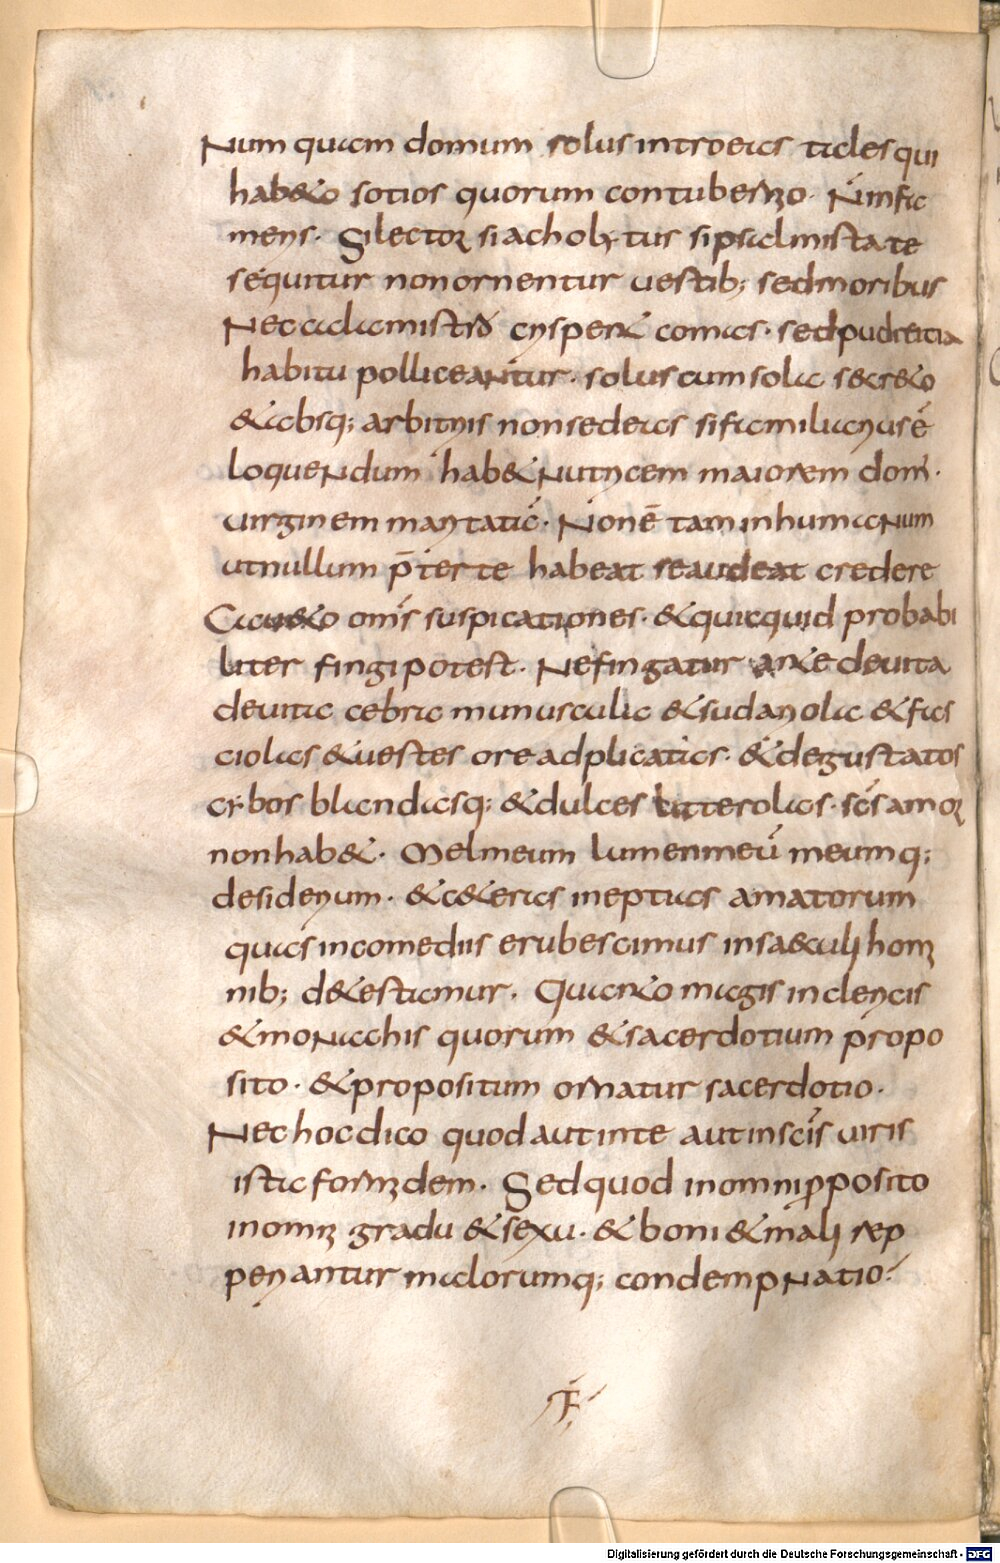 Num quam domum solus introeas tales qui
habeto sotios quorum contubernio· Ninfa
meris· Si lector si acholytus si psalmista te
sequitur non ornentur uestib; sed moribus
Nec calamistrō crispent comas· sed pudicitia
habitu polliceantur· solus cum sola secreto
& absq; arbitris non sedeas si familiarius ē
loquendum hab& nutricem maiorem dom̄·
uirginem maritatā· Non ē tam inhumanum
ut nullum p̄ter te habeat se audeat credere
Caueto om̄s suspicationes· & quicquid probabi
liter fingi potest· Ne fingatur ante deuita
deuita cebra munuscula & sudariola & fas
ciolas & uestes ore adplicatas· & degustatos
cybos blandasq; & dulces litterolas· sc̄s amor
non hab&· Mel meum lumen meū meumq;
desiderium· & c&eras ineptias amatorum
quas in comediis erubescimus in saeculi homi
nib; d&estamur· Quanto magis in clericis
& monachis quorum & sacerdotium propo
sito· & propositum ornatur sacerdotio·
Nec hoc dico quod aut in te aut in sc̄is uiris
ista formidem· Sed quod in omni pposito
in omni gradu & sexu· & boni & mali rep
periantur malorumq; condempnatio
Digitalisierung gefördert durch die Deutsche Forschungsgemeinschaft - DFG